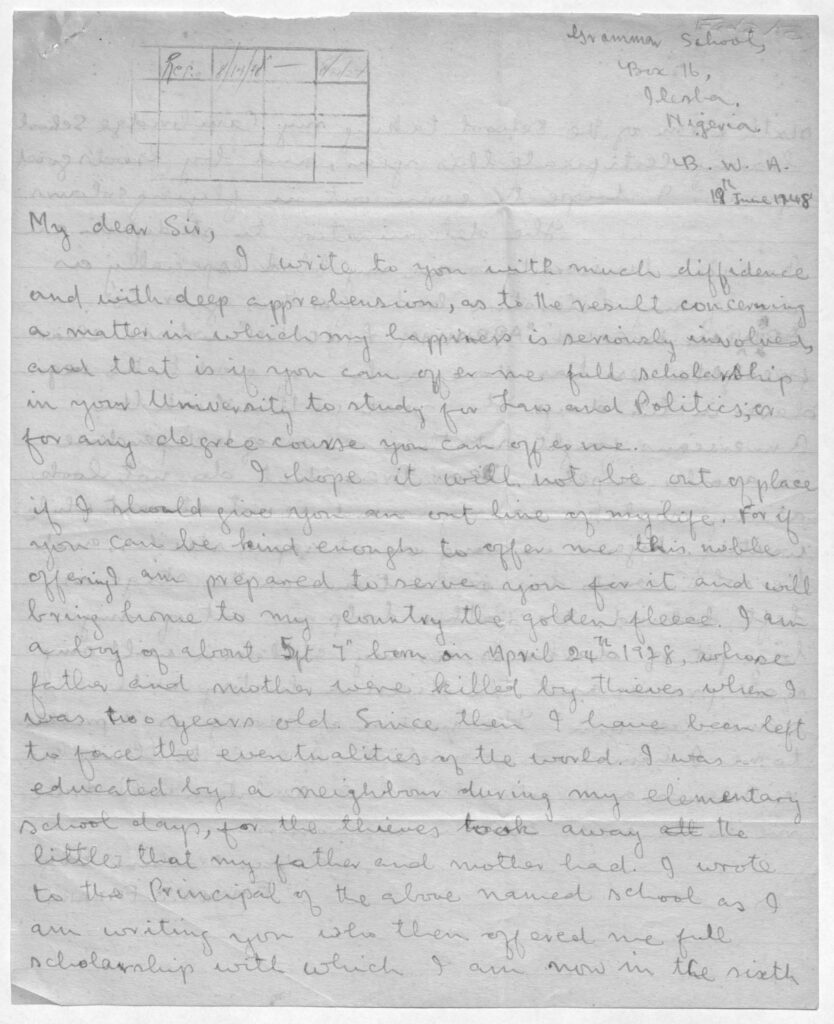 Grammar School,
Box 16,
Ilesha,
Nigeria.
B. W. A.
19th June 1948
Recd
My dear Sir,
I write to you with much diffidence
and with deep apprehension, as to the result concerning
a matter in which my happiness is seriously involved,
and that is if you can offer me full scholarship
in your University to study for Law and Politics; or
for any degree course you can offer me.
I hope it will not be out of place
if I should give you an out line of my life. For if
you can be kind enough to offer me this noble
offering I am prepared to serve you for it and will
bring home to my country the golden fleece. I am
a boy of about 5ft 7" born on April 24th 1928, whose
father and mother were killed by thieves when I
was two years old. Since then I have been left
to face the eventualities of the world. I was
educated by a neighbour during my elementary
school days, for the thieves took away all the
little that my father and mother had. I wrote
to the Principal of the above named school as I
am writing you who then offered me full
scholarship with which I am now in the sixth